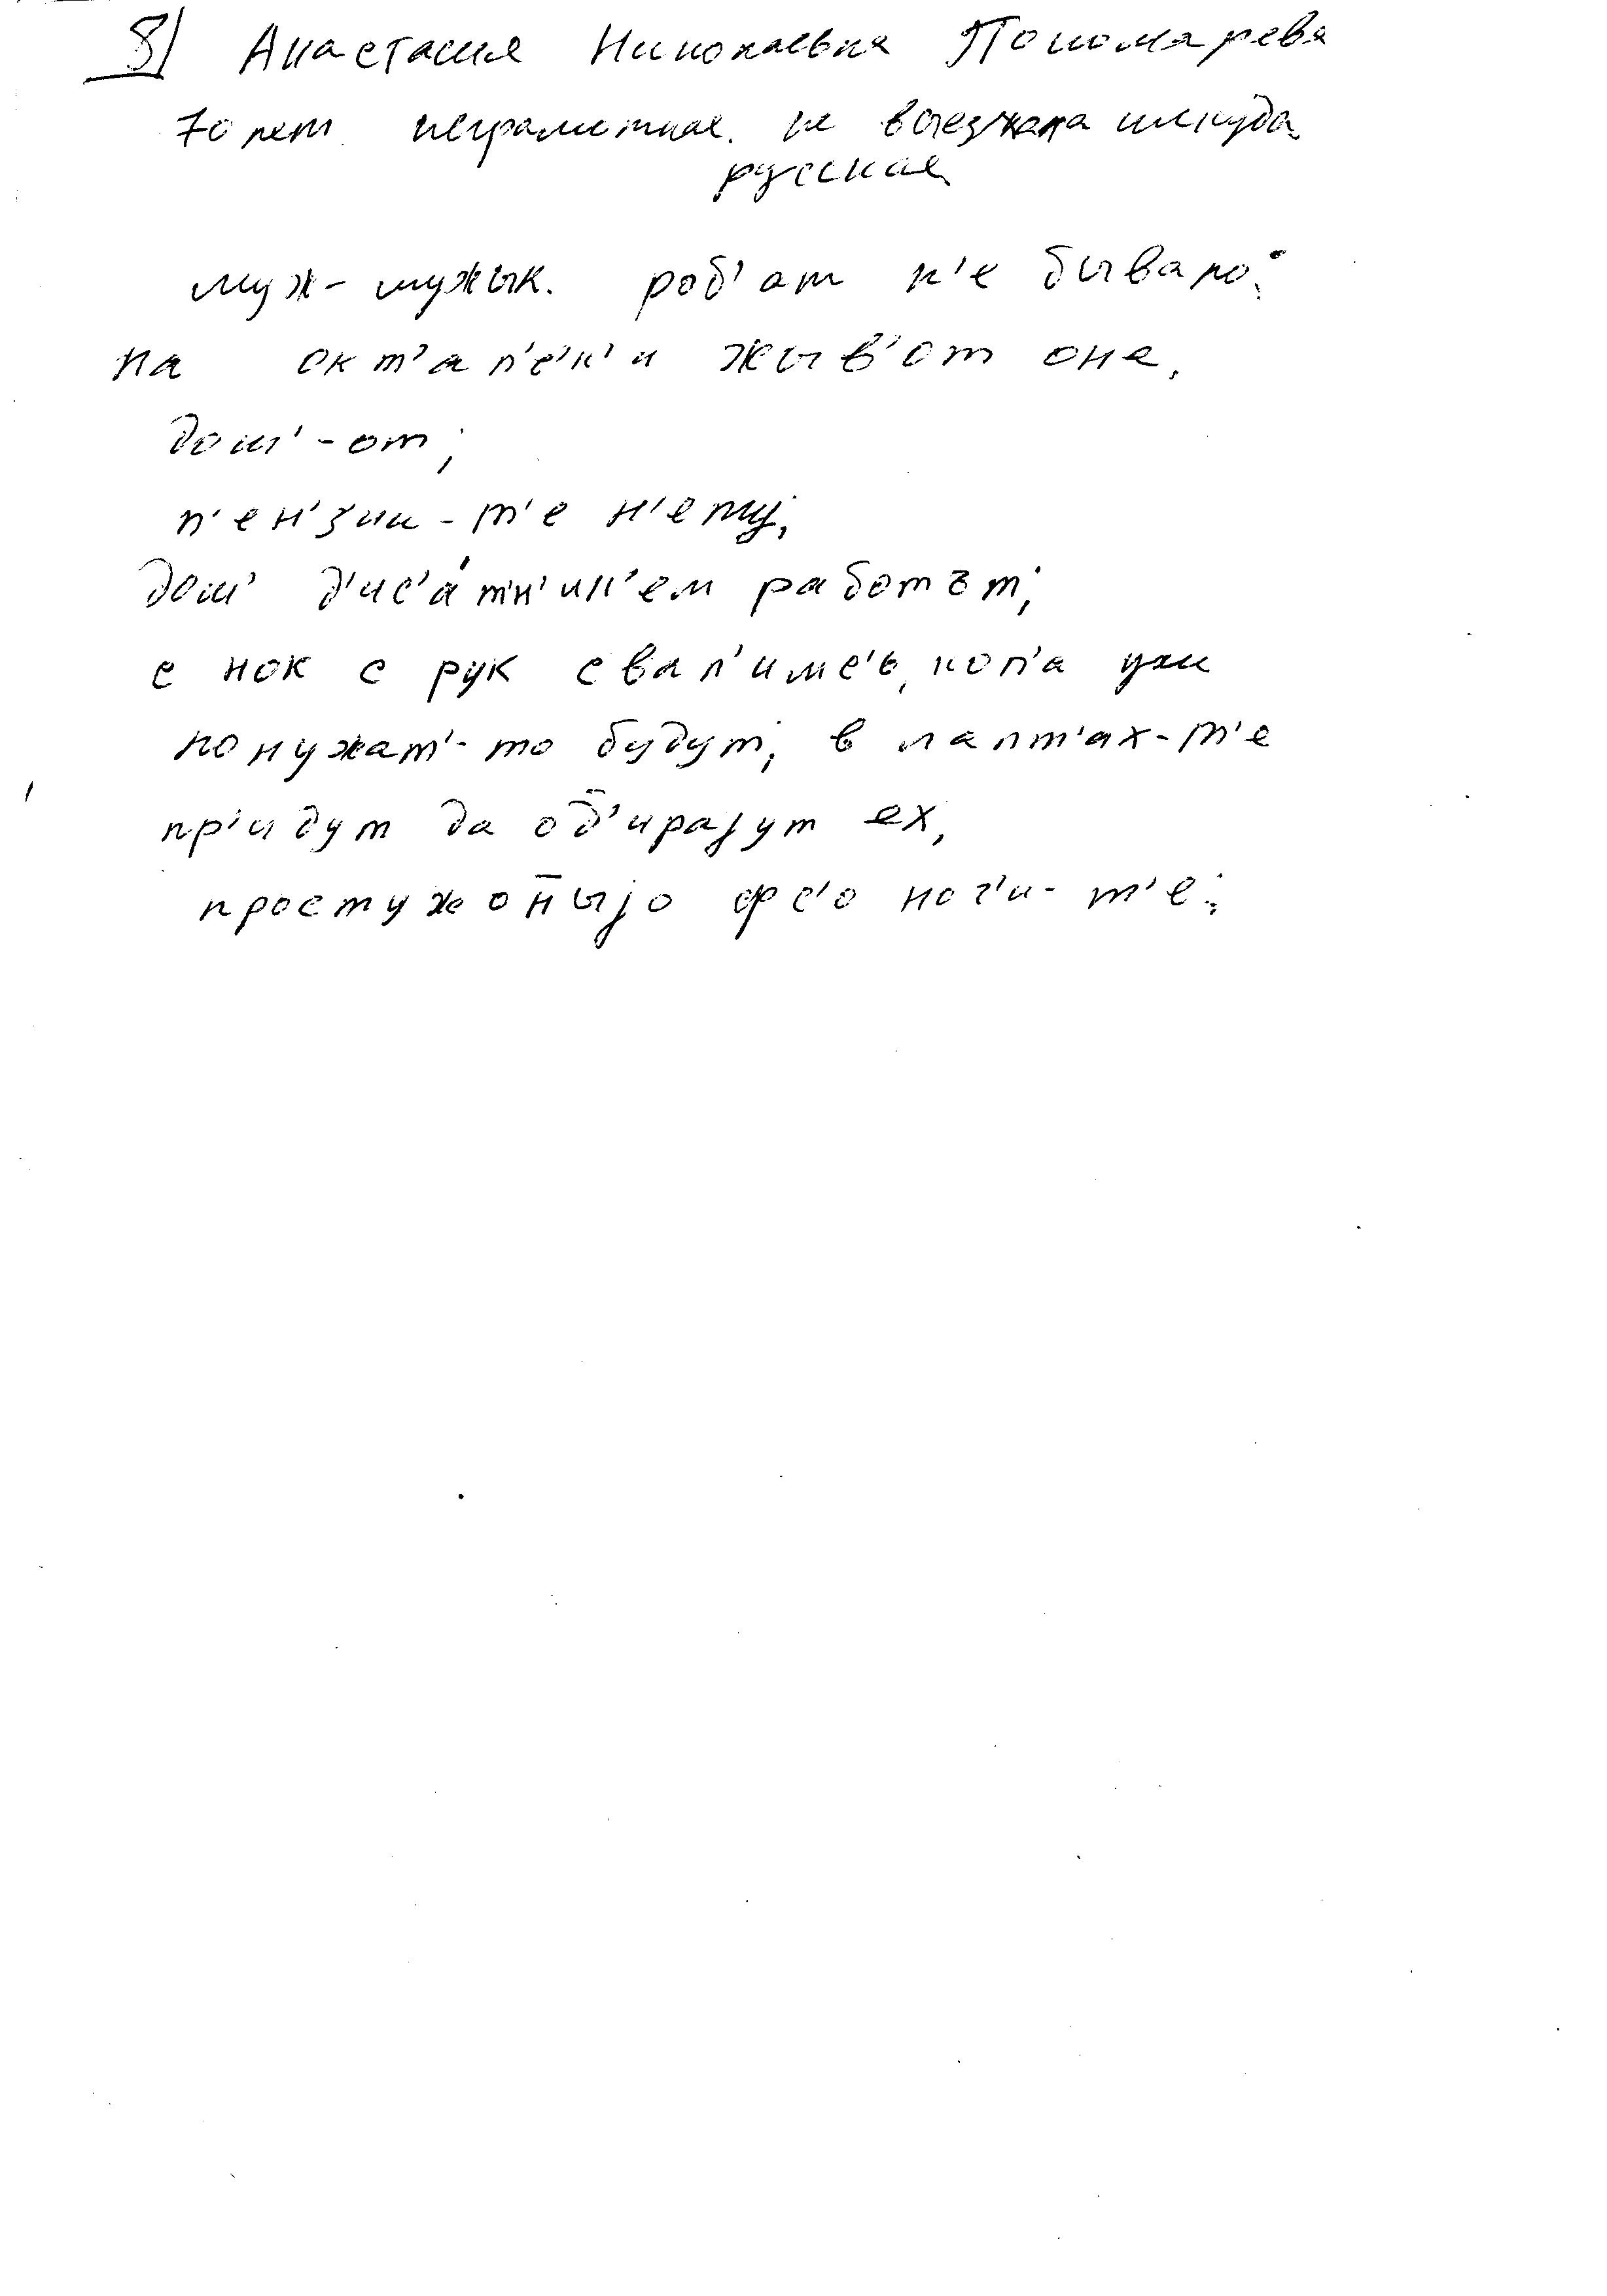 8) Анастасия Николаевна Пономарева
70 лет. неграмотная. не выезжала никуда
русская
муж- мужык. роб'ат н'е бывало:
на окт'ап'е'к'и жыв'от она,
дош'-от;
п'ен'зии-т'е н'ету;
дош' д'ис'а́тн'ик'ем работът;
с нок с рук свал'имс'ь, кол'а уж
понужат'-то будут; в лапт'ах-т'е
пр'идут да од̄'ирајут ех,
простужон̄ыjо фс'о ног'и-т'е: